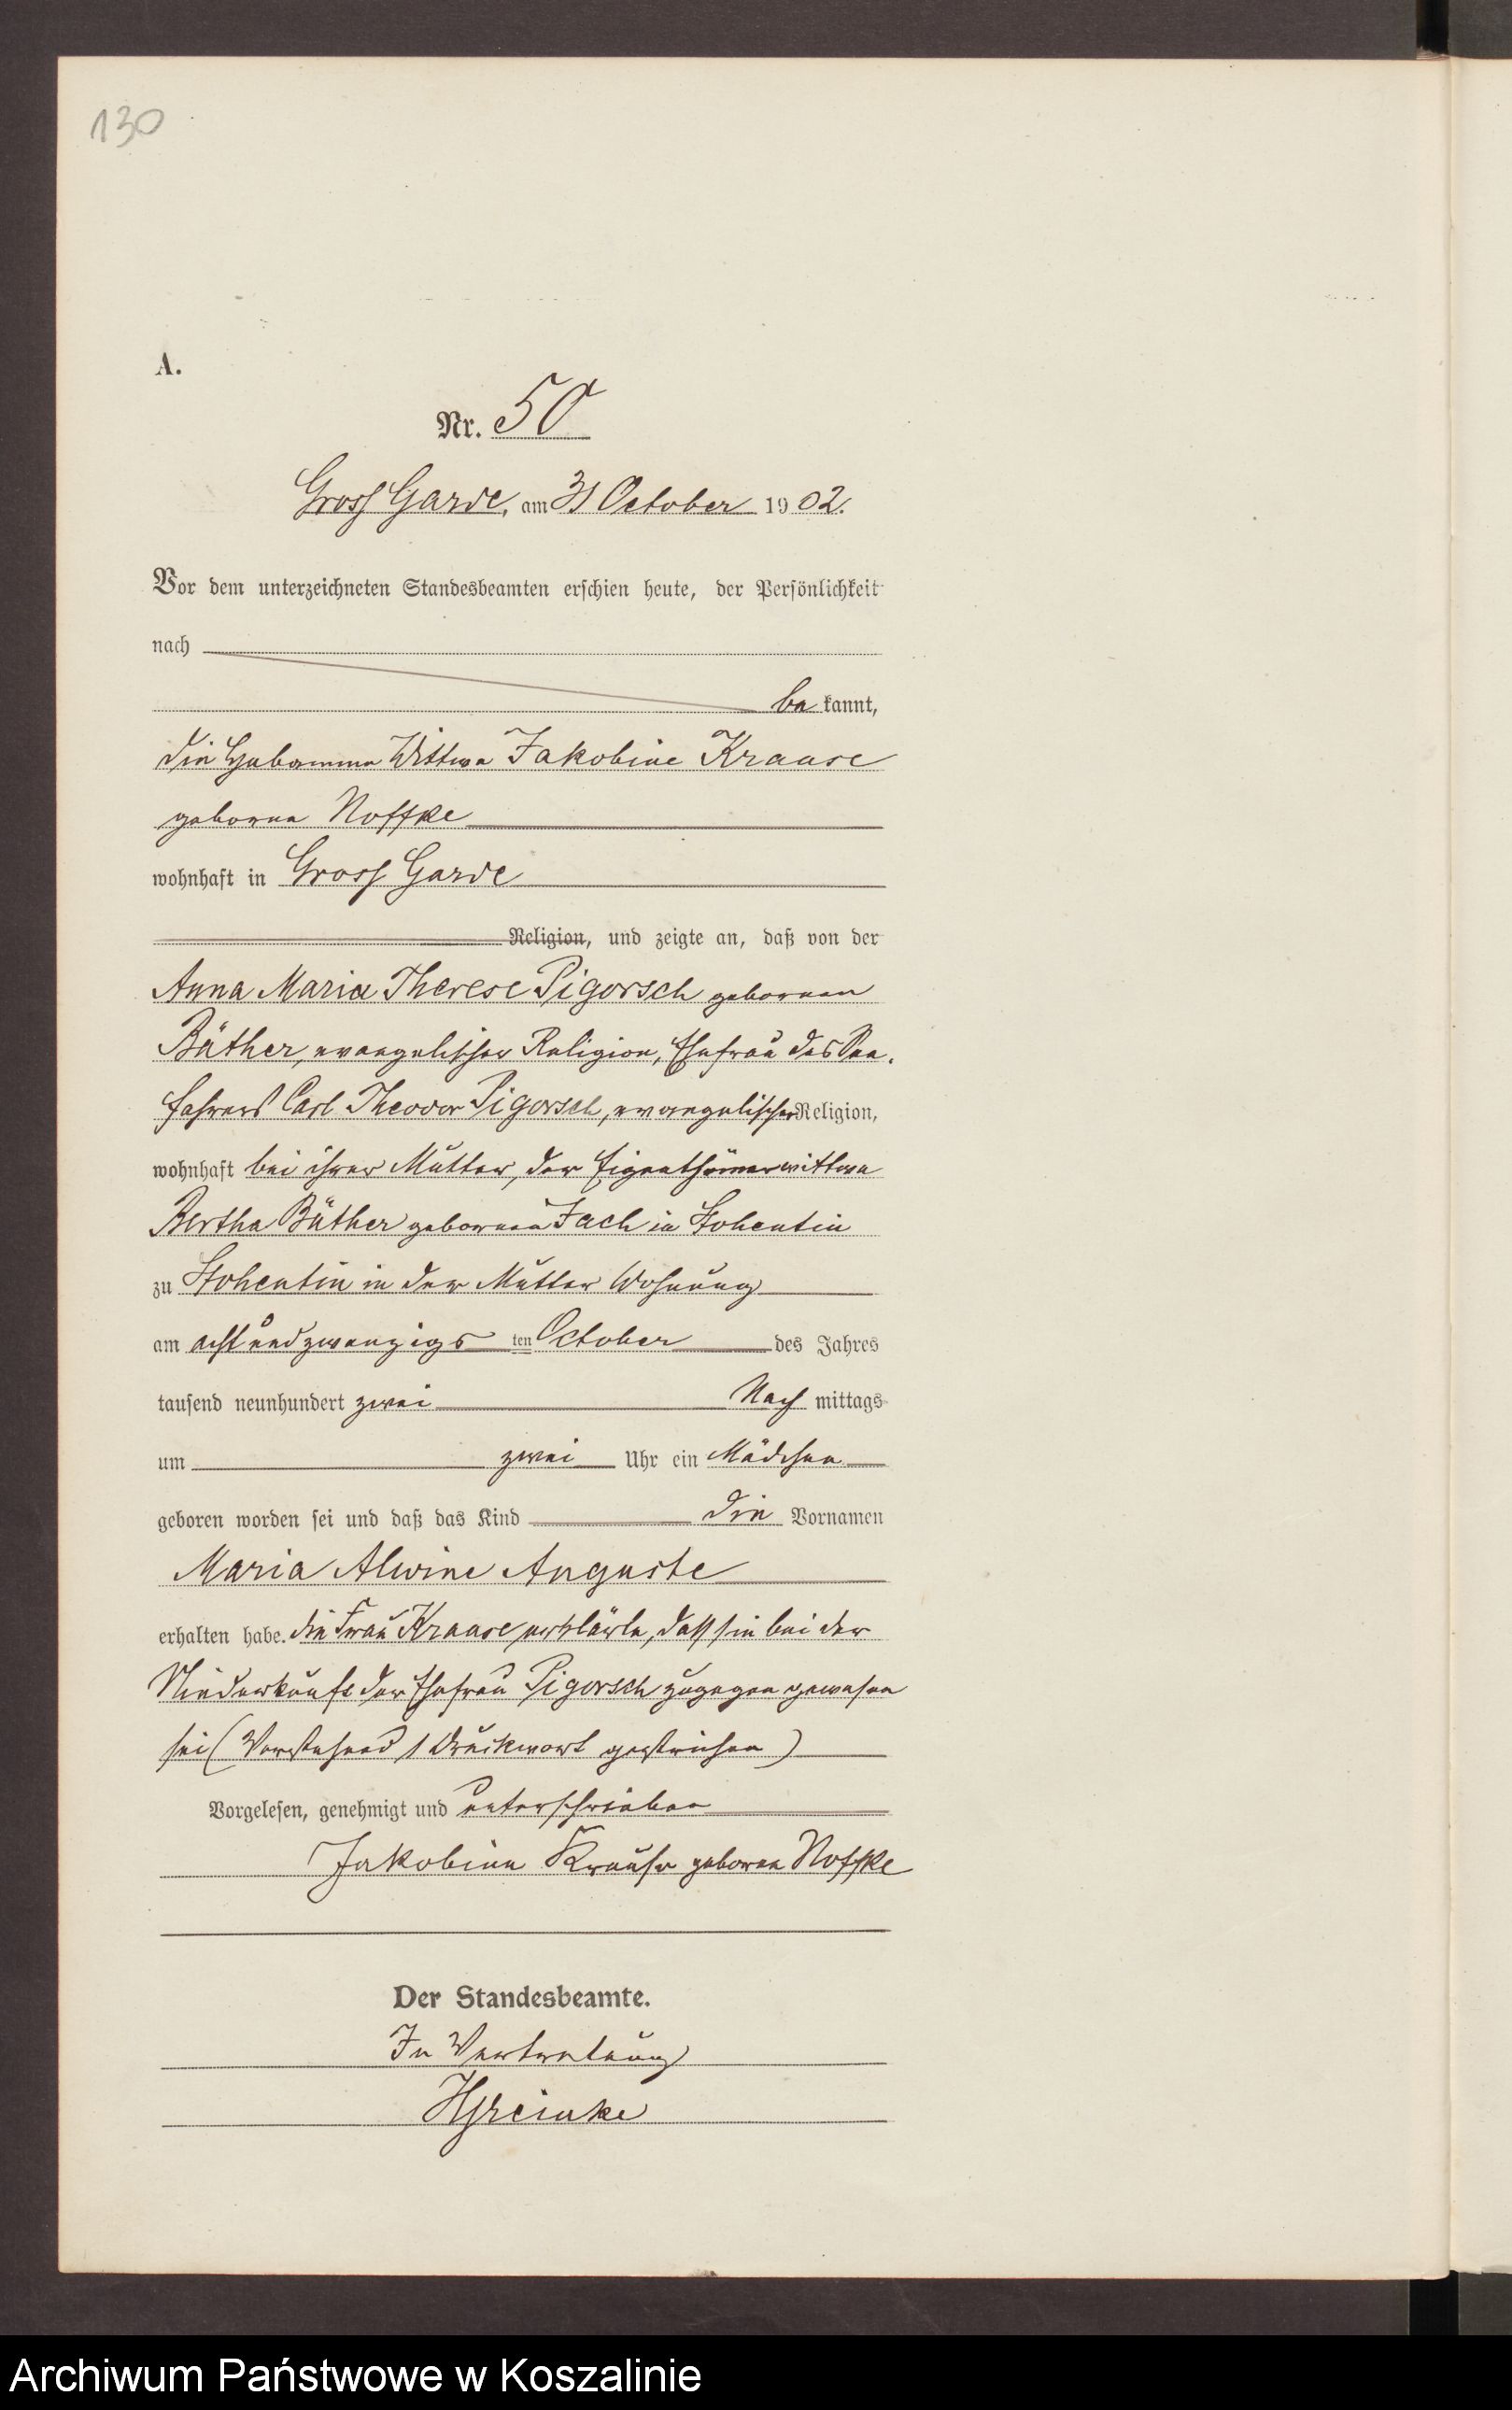 130
A.
Nr. 50
Gross Garde, am 31 October 1902.
Vor dem unterzeichneten Standesbeamten erschien heute, der Persönlichkeit
nach
be kannt,
die Hebamme Wittwe Jakobine Krause
geborne Noffke
wohnhaft in Gross Garde
Religion, und zeigte an, daß von der
Anna Maria Therese Pigorsch geborenen
Büther, evangelischer Religion, Ehefrau des See-
fahrers Carl Theodor Pigorsch, evangelischer Religion,
wohnhaft bei ihrer Mutter, der Eigenthümerwittwe
Bertha Büther geborenen Jach in Stohentin
zu Stohentin in der Mutter Wohnung
am acht und zwanzigs ten October des Jahres
tausend neunhundert zwei Nach mittags
um zwei Uhr ein Mädchen
geboren worden sei und daß das Kind die Vornamen
Maria Alwine Auguste
erhalten habe. Die Frau Krause erklärte, dass sie bei der
Niederkunft der Ehefrau Pigorsch zugegen gewesen
sei (Vorstehend 1 Druckwort gestrichen)
Vorgelesen, genehmigt und unterschrieben
Jakobine Krause geborne Noffke
Der Standesbeamte.
In Vertretung
Archiwum Państwowe w Koszalinie